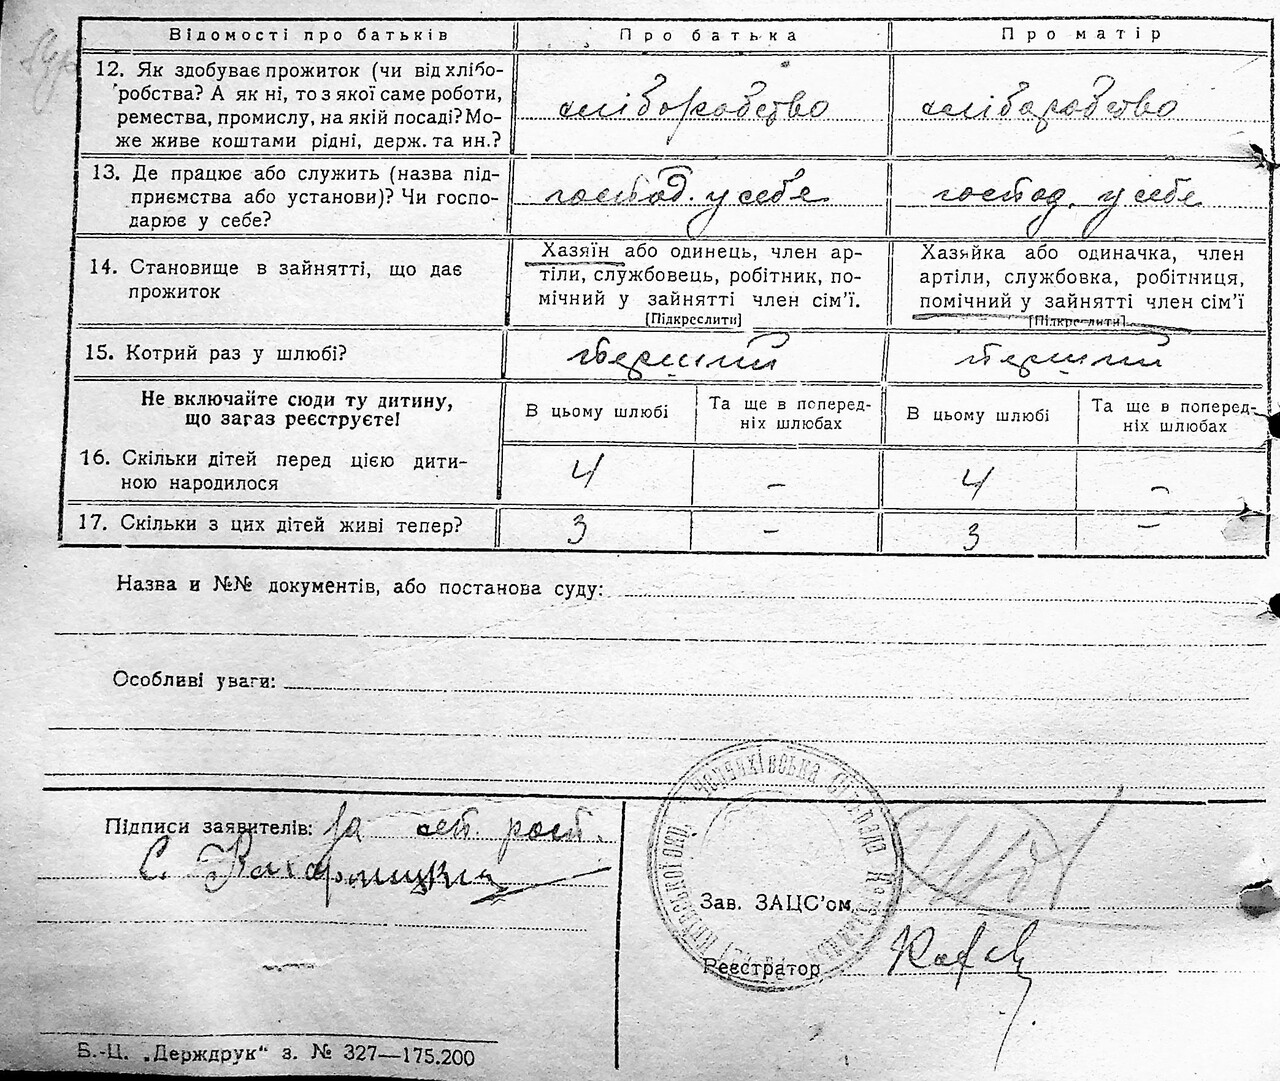 Відомості про батьків
Про батька
Про матір
12. Як здобуває прожиток (чи від хлібо-
робства? А як ні, то з якої саме роботи,
ремества, промислу, на якій посаді? Мо-
же живе коштами рідні, держ. та ин.?
хліборобство
хліборобство
13. Де працює або служить (назва під-
приємства або установи)? Чи госпо-
дарює у себе?
господ. у себе
господ. у себе
14. Становище в зайнятті, що дає
прожиток
Хазяїн або одинець, член ар-
тіли, службовець, робітник, по-
мічний у зайнятті член сім'ї.
[Підкреслити]
Хазяйка або одиначка, член
артіли, службовка, робітниця,
помічний у зайнятті член сім'ї
[Підкреслити]
15. Котрий раз у шлюбі?
перший
перший
Не включайте сюди ту дитину,
що загаз реєструєте!
В цьому шлюбі
Та ще в поперед-
ніх шлюбах
В цьому шлюбі
Та ще в поперед-
ніх шлюбах
16. Скільки дітей перед цією дити-
ною народилося
4
–
4
–
17. Скільки з цих дітей живі тепер?
3
–
3
–
Назва и №№ документів, або постанова суду:
Особливі уваги:
Підписи заявителів: за
С.
Зав. ЗАЦС'ом
Реєстратор
Б.-Ц. „Держдрук" з. № 327—175.200